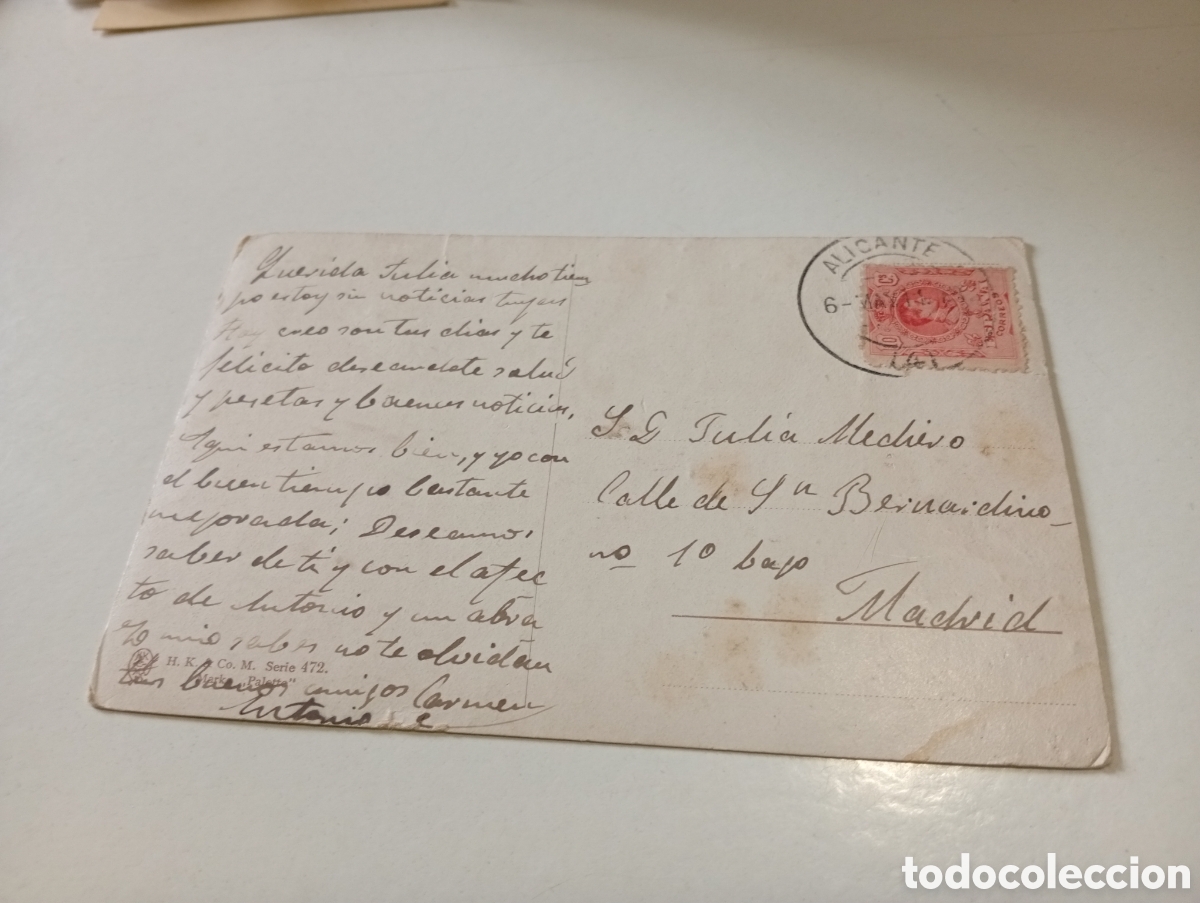 Querida Julia mucho tiem
po estoy sin noticias tuyas
Hoy creo son tus dias y te
felicito deseandote salud
y pesetas y buenas noticias,
Aqui estamos bien, y yo con
el buen tiempo bastante
mejorada; Deseamos
saber de ti y con el afec
to de Antonio y un abra
zo mio sabes no te olvidan
tus buenos amigos Carmen
Antonio
H. K. & Co. M. Serie 472.
Marke „Palette"
ALICANTE
6-MAY
CORREOS
10
S D Julia Mediero
Calle de Sn Bernardino
no 1º bajo
Madrid
todocoleccion